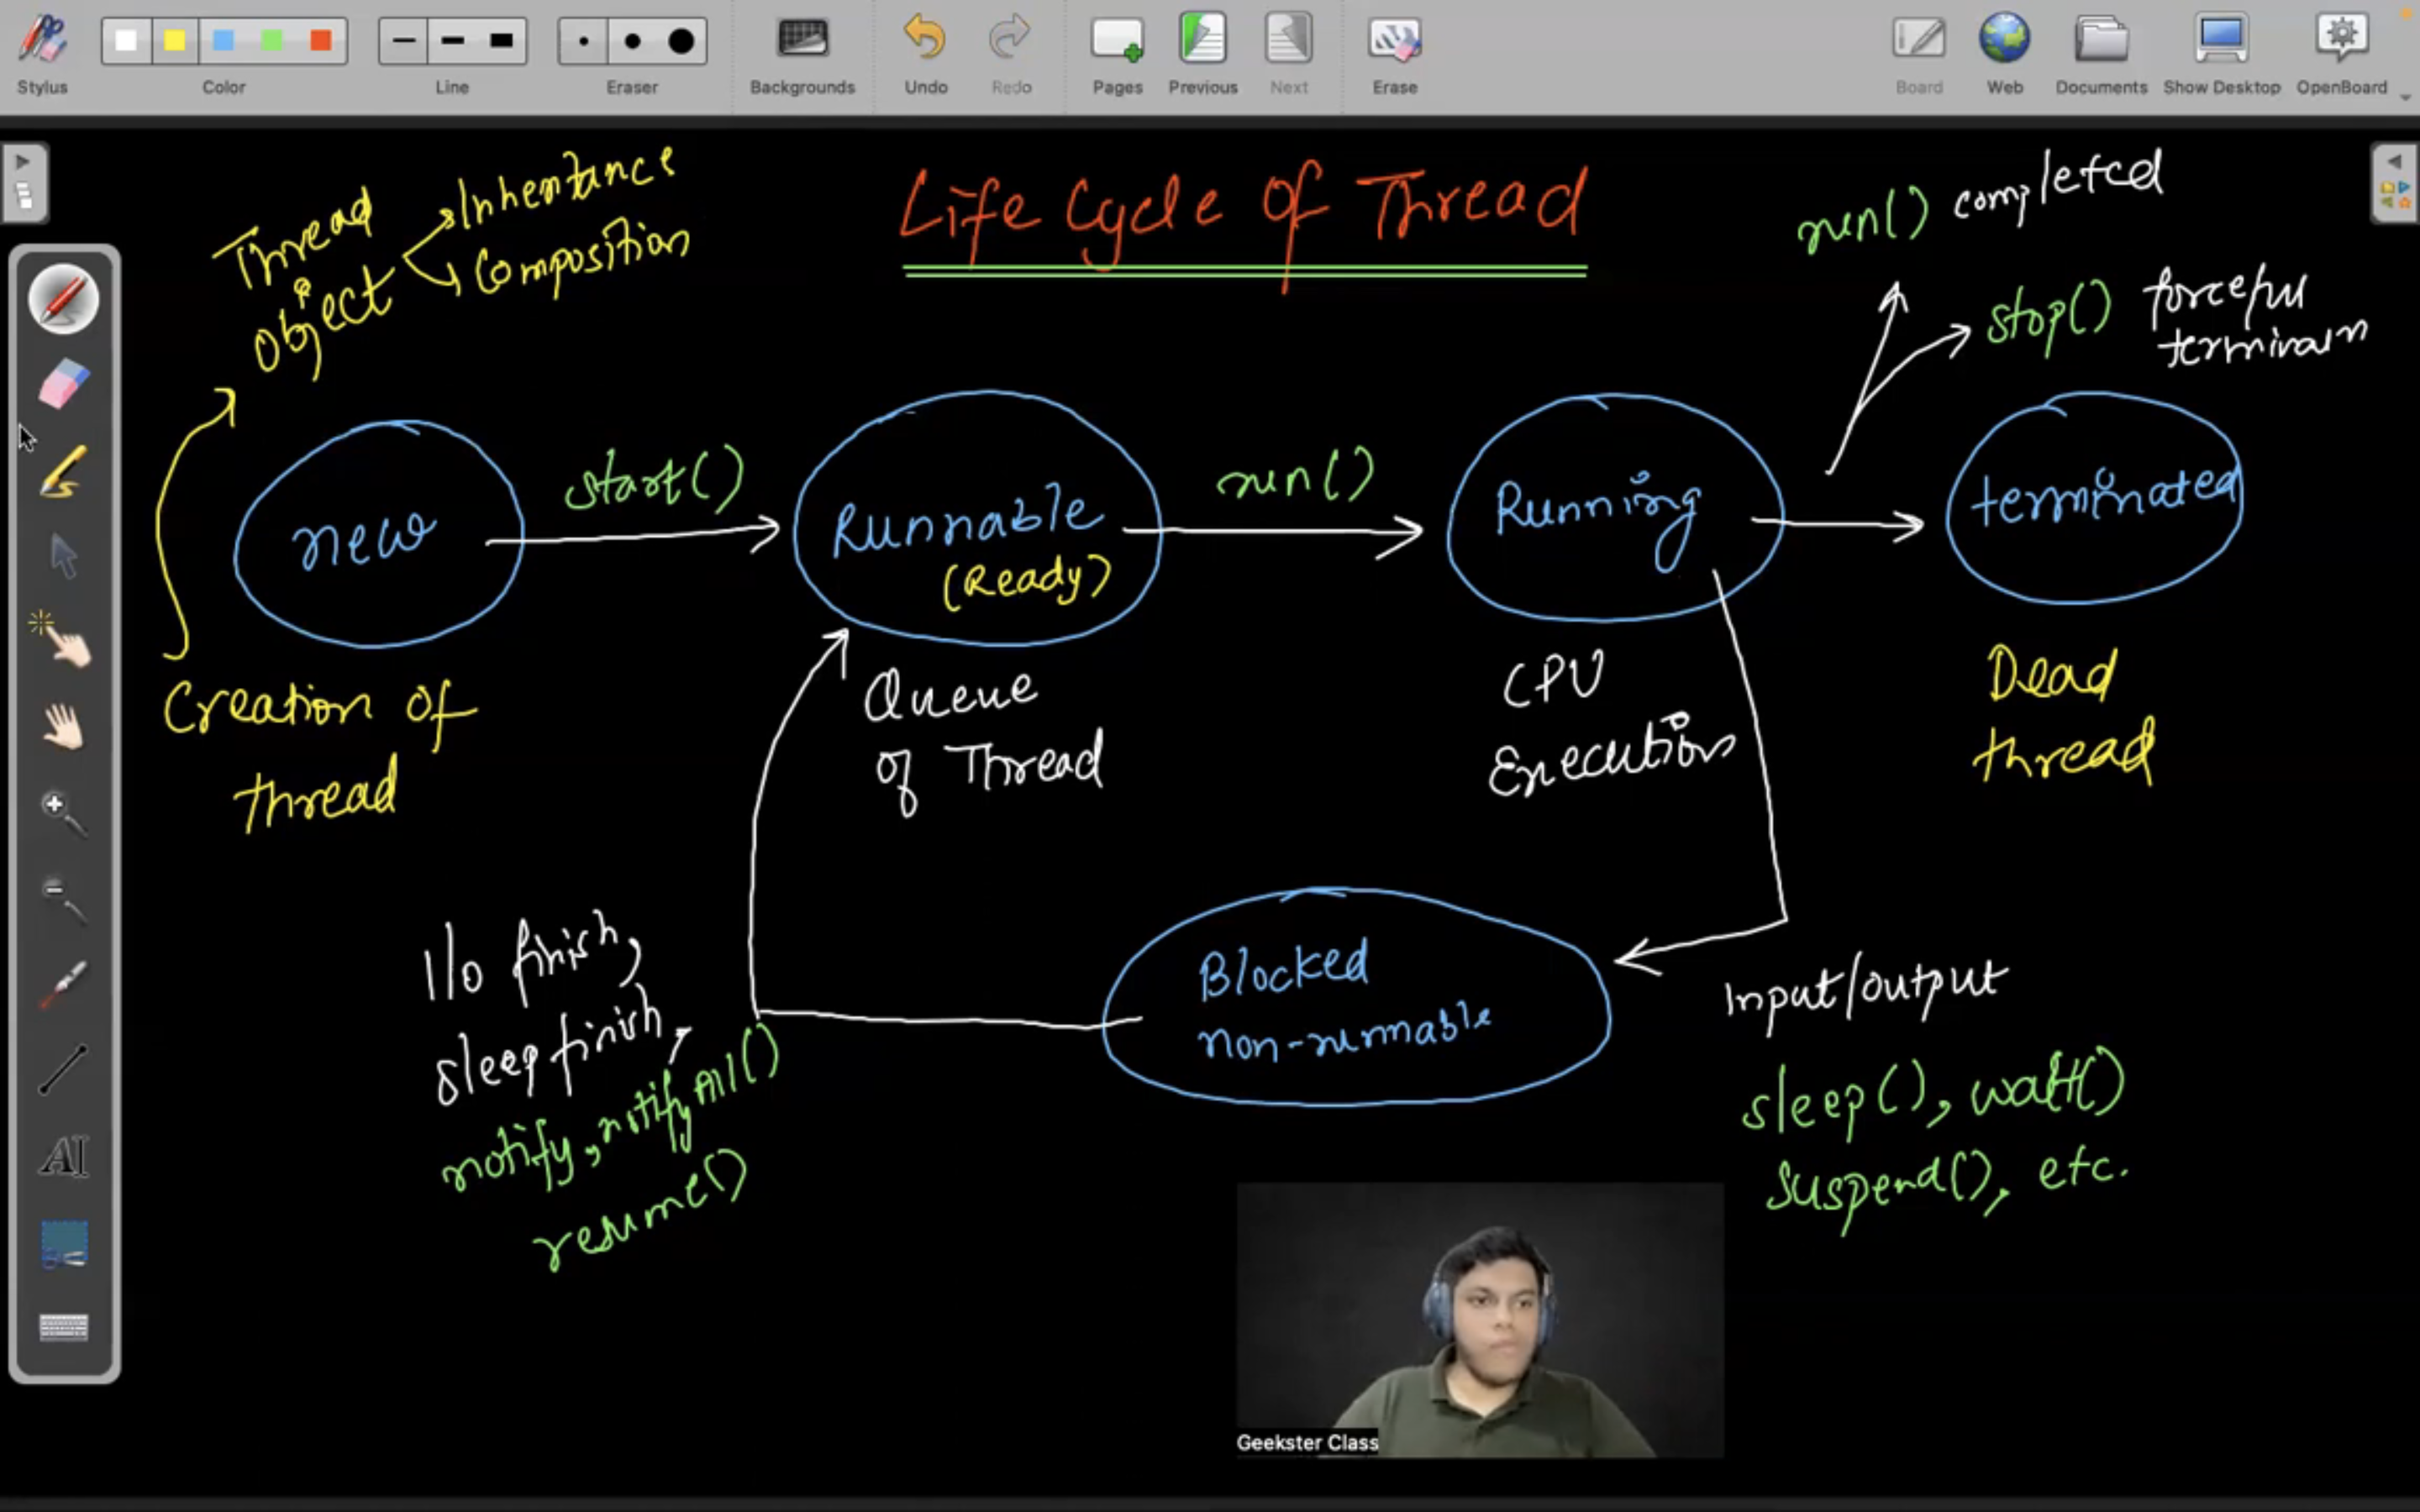 Stylus
Color
Line
Eraser
Backgrounds
Undo
Redo
Pages
Previous
Next
Erase
Board
Web
Documents
Show Desktop
OpenBoard
Life Cycle Of Thread
Thread
Object
Inheritance
Composition
run() completed
stop() forceful
new
start()
Runnable
(Ready)
run()
Running
terminated
Creation of
thread
Queue
of Thread
CPU
Execution
Dead
thread
I/O finish,
sleep finish,
notify, notifyAll()
resume()
Blocked
non-runnable
Input/output
sleep(), wait()
suspend(), etc.
AI
Geekster Class